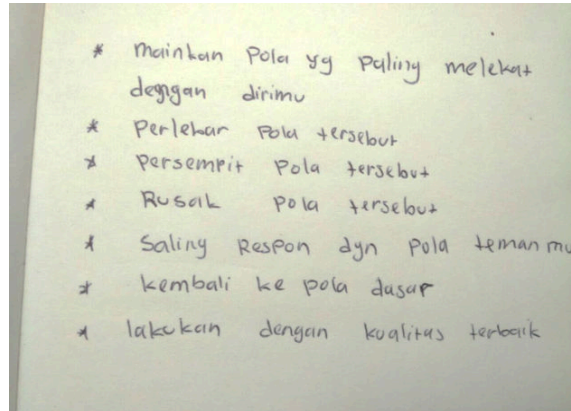 * mainkan pola yg paling melekat
dengan dirimu
* Perlebar pola tersebut
* Persempit pola tersebut
* Rusak pola tersebut
* Saling Respon dgn pola temanmu
* kembali ke pola dasar
* lakukan dengan kualitas terbaik